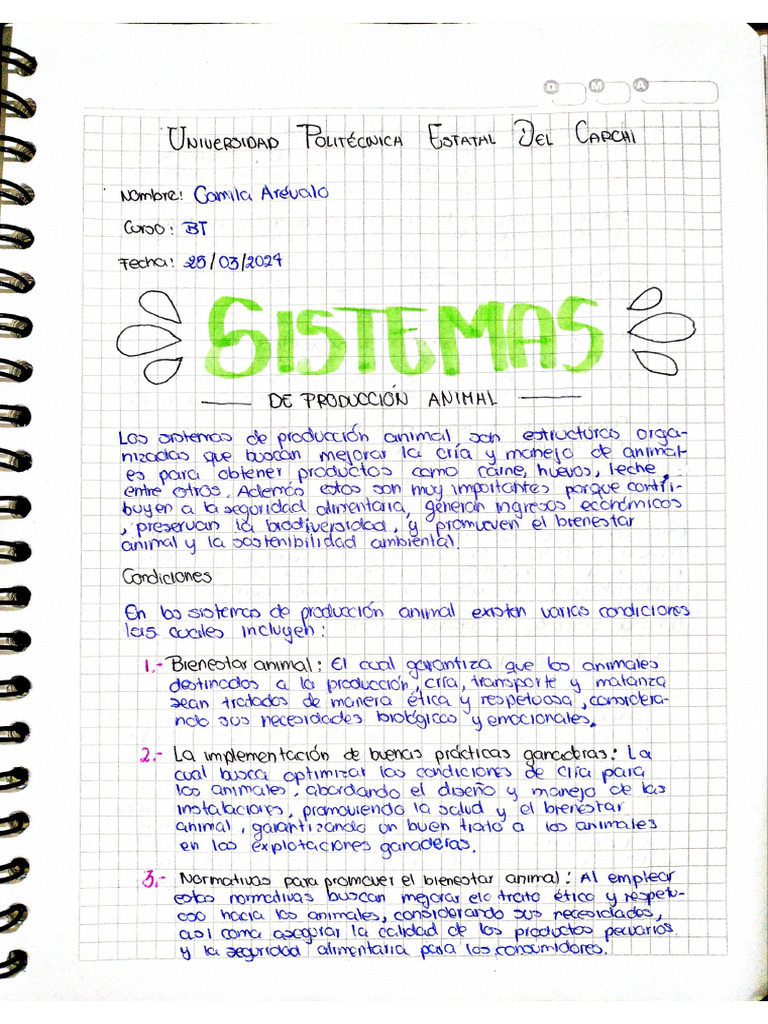 D M A
Universidad Politécnica Estatal Del Carchi
Nombre: Camila Arévalo
Curso: BT
Fecha: 25/03/2024
SISTEMAS
DE PRODUCCIÓN ANIMAL
Los sistemas de producción animal son estructuras orga-
nizadas que buscan mejorar la cría y manejo de animal-
es para obtener productos como carne, huevos, leche,
entre otros. Además estos son muy importantes porque contri-
buyen a la seguridad alimentaria, generan ingresos económicos
, preservan la biodiversidad, y promueven el bienestar
animal y la sostenibilidad ambiental.
Condiciones
En los sistemas de producción animal existen varias condiciones
las cuales incluyen:
1.- Bienestar animal: El cual garantiza que los animales
destinados a la producción, cría, transporte y matanza
sean tratados de manera ética y respetuosa, considera-
ndo sus necesidades biológicas y emocionales.
2.- La implementación de buenas prácticas ganaderas: La
cual busca optimizar las condiciones de cría para
los animales, abordando el diseño y manejo de las
instalaciones, promoviendo la salud y el bienestar
animal, garantizando un buen trato a los animales
en las explotaciones ganaderas.
3.- Normativas para promover el bienestar animal: Al emplear
estas normativas buscan mejorar elc trato ético y respetu-
oso hacia los animales, considerando sus necesidades,
así como asegurar la calidad de los productos pecuarios
y la seguridad alimentaria para los consumidores.